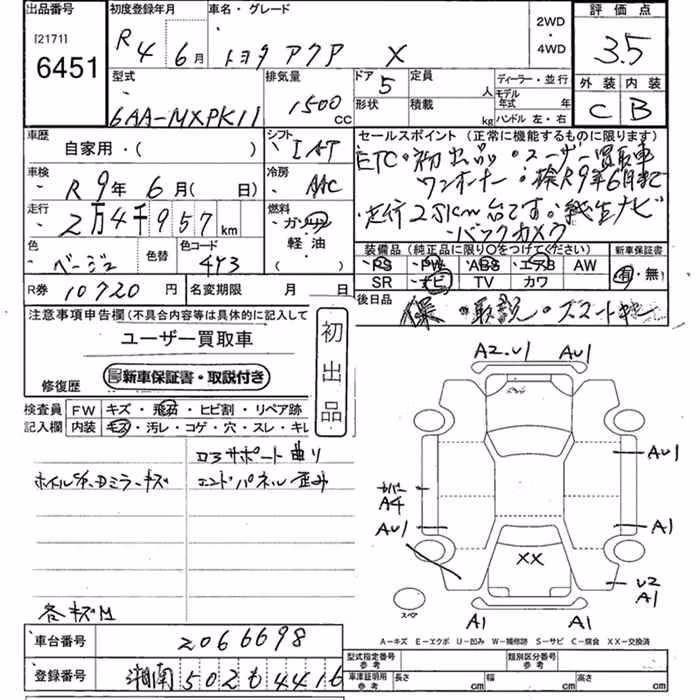 出品番号 初度登録年月 車名・グレード 2WD ・ 4WD 評価点
[2171]
6451 R4 6月 トヨタ アクア X 3.5
型式 排気量 ドア 5 定員 人 ディーラー・並行 外装 内装
6AA-MXPK11 1500 CC 形状 積載 kg モデル年式 年 ハンドル 左・右 C B
車歴 シフト セールスポイント (正常に機能するものに限ります)
自家用・( ) IAT ETC・初出品・ユーザー買取車
車検 冷房 ワンオーナー・検R9年6月まで
R 9年 6月( 日) AAC
走行 燃料 走行2.5km台です。純正ナビ
2万4千957km ガソリン 軽油 ・バックカメラ
色 色替 色コード 装備品 (純正品に限り○をつけてください) 新車保証書
ベージュ 4Y3 PS PW ABS エアB AW 有・無
SR ナビ TV カワ
R券 10720 円 名変期限 月 日 後日品
注意事項申告欄(不具合内容等は具体的に記入して 保・取説・スマートキー
ユーザー買取車 初出品
新車保証書・取説付き
修復歴 A2.U1 AU1
検査員 FW キズ・飛石・ヒビ割・リペア跡
記入欄 内装 キズ・汚レ・コゲ・穴・スレ・キレ
コアサポート曲り AU1
ホイルキズ・Dミラーキズ エンドパネル歪み
A4
AU1 A1
XX
U2
A1
各キズM A1 A1
A-キズ E-エクボ U-凹み W-補修跡 S-サビ C-腐食 XX-交換済
車台番号 2066698 型式指定番号 参考 類別区分番号 参考
登録番号 湘南 502 も 4416 車庫証明用 参考 長さ cm 幅 cm 高さ cm